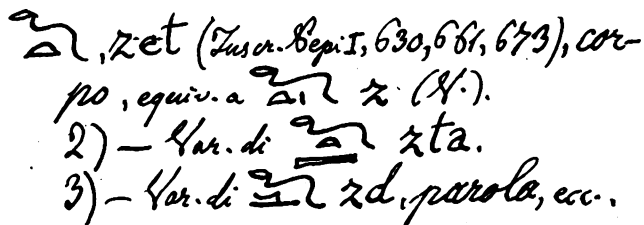 𓆓𓏏, zet (Inscr. Sepi I, 630, 661, 673), cor-
po, equiv. a 𓆓𓏏𓏤 z (V.).
2) — Var. di 𓆓𓏏𓇿 zta.
3) — Var. di 𓆓𓂧 zd, parola, ecc..